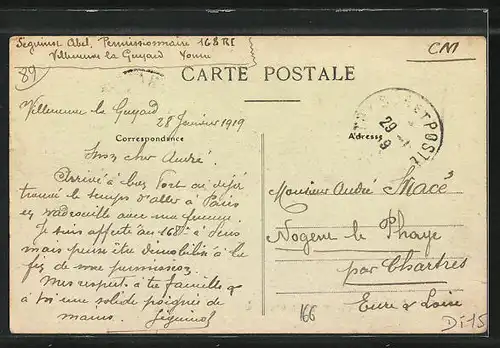 Séguinol Abel, Permissionnaire 168 RI
Villeneuve la Guyard Yonne
CM
89
CARTE POSTALE
Villeneuve la Guyard
28 Janvier 1919
Correspondance
Adresse
29 -1
19
POSTES
Mon cher André.
Arrivé à bon Port ai déjà
trouvé le temps d'aller à Paris
en vadrouille avec ma femme.
Je suis affecté au 168e à Sens
mais peux être démobilisé à la
fin de ma permission
Mes respects à ta famille &
à toi une solide poignée de
mains. Séguinol
Monsieur André Macé
Nogent le Phaye
par Chartres
Eure & Loire
166
Di 15